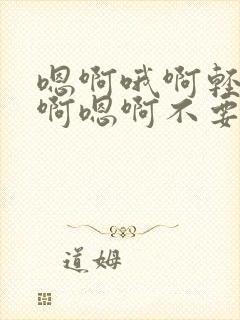 嗯啊哦啊轻
啊嗯啊不要
道姆